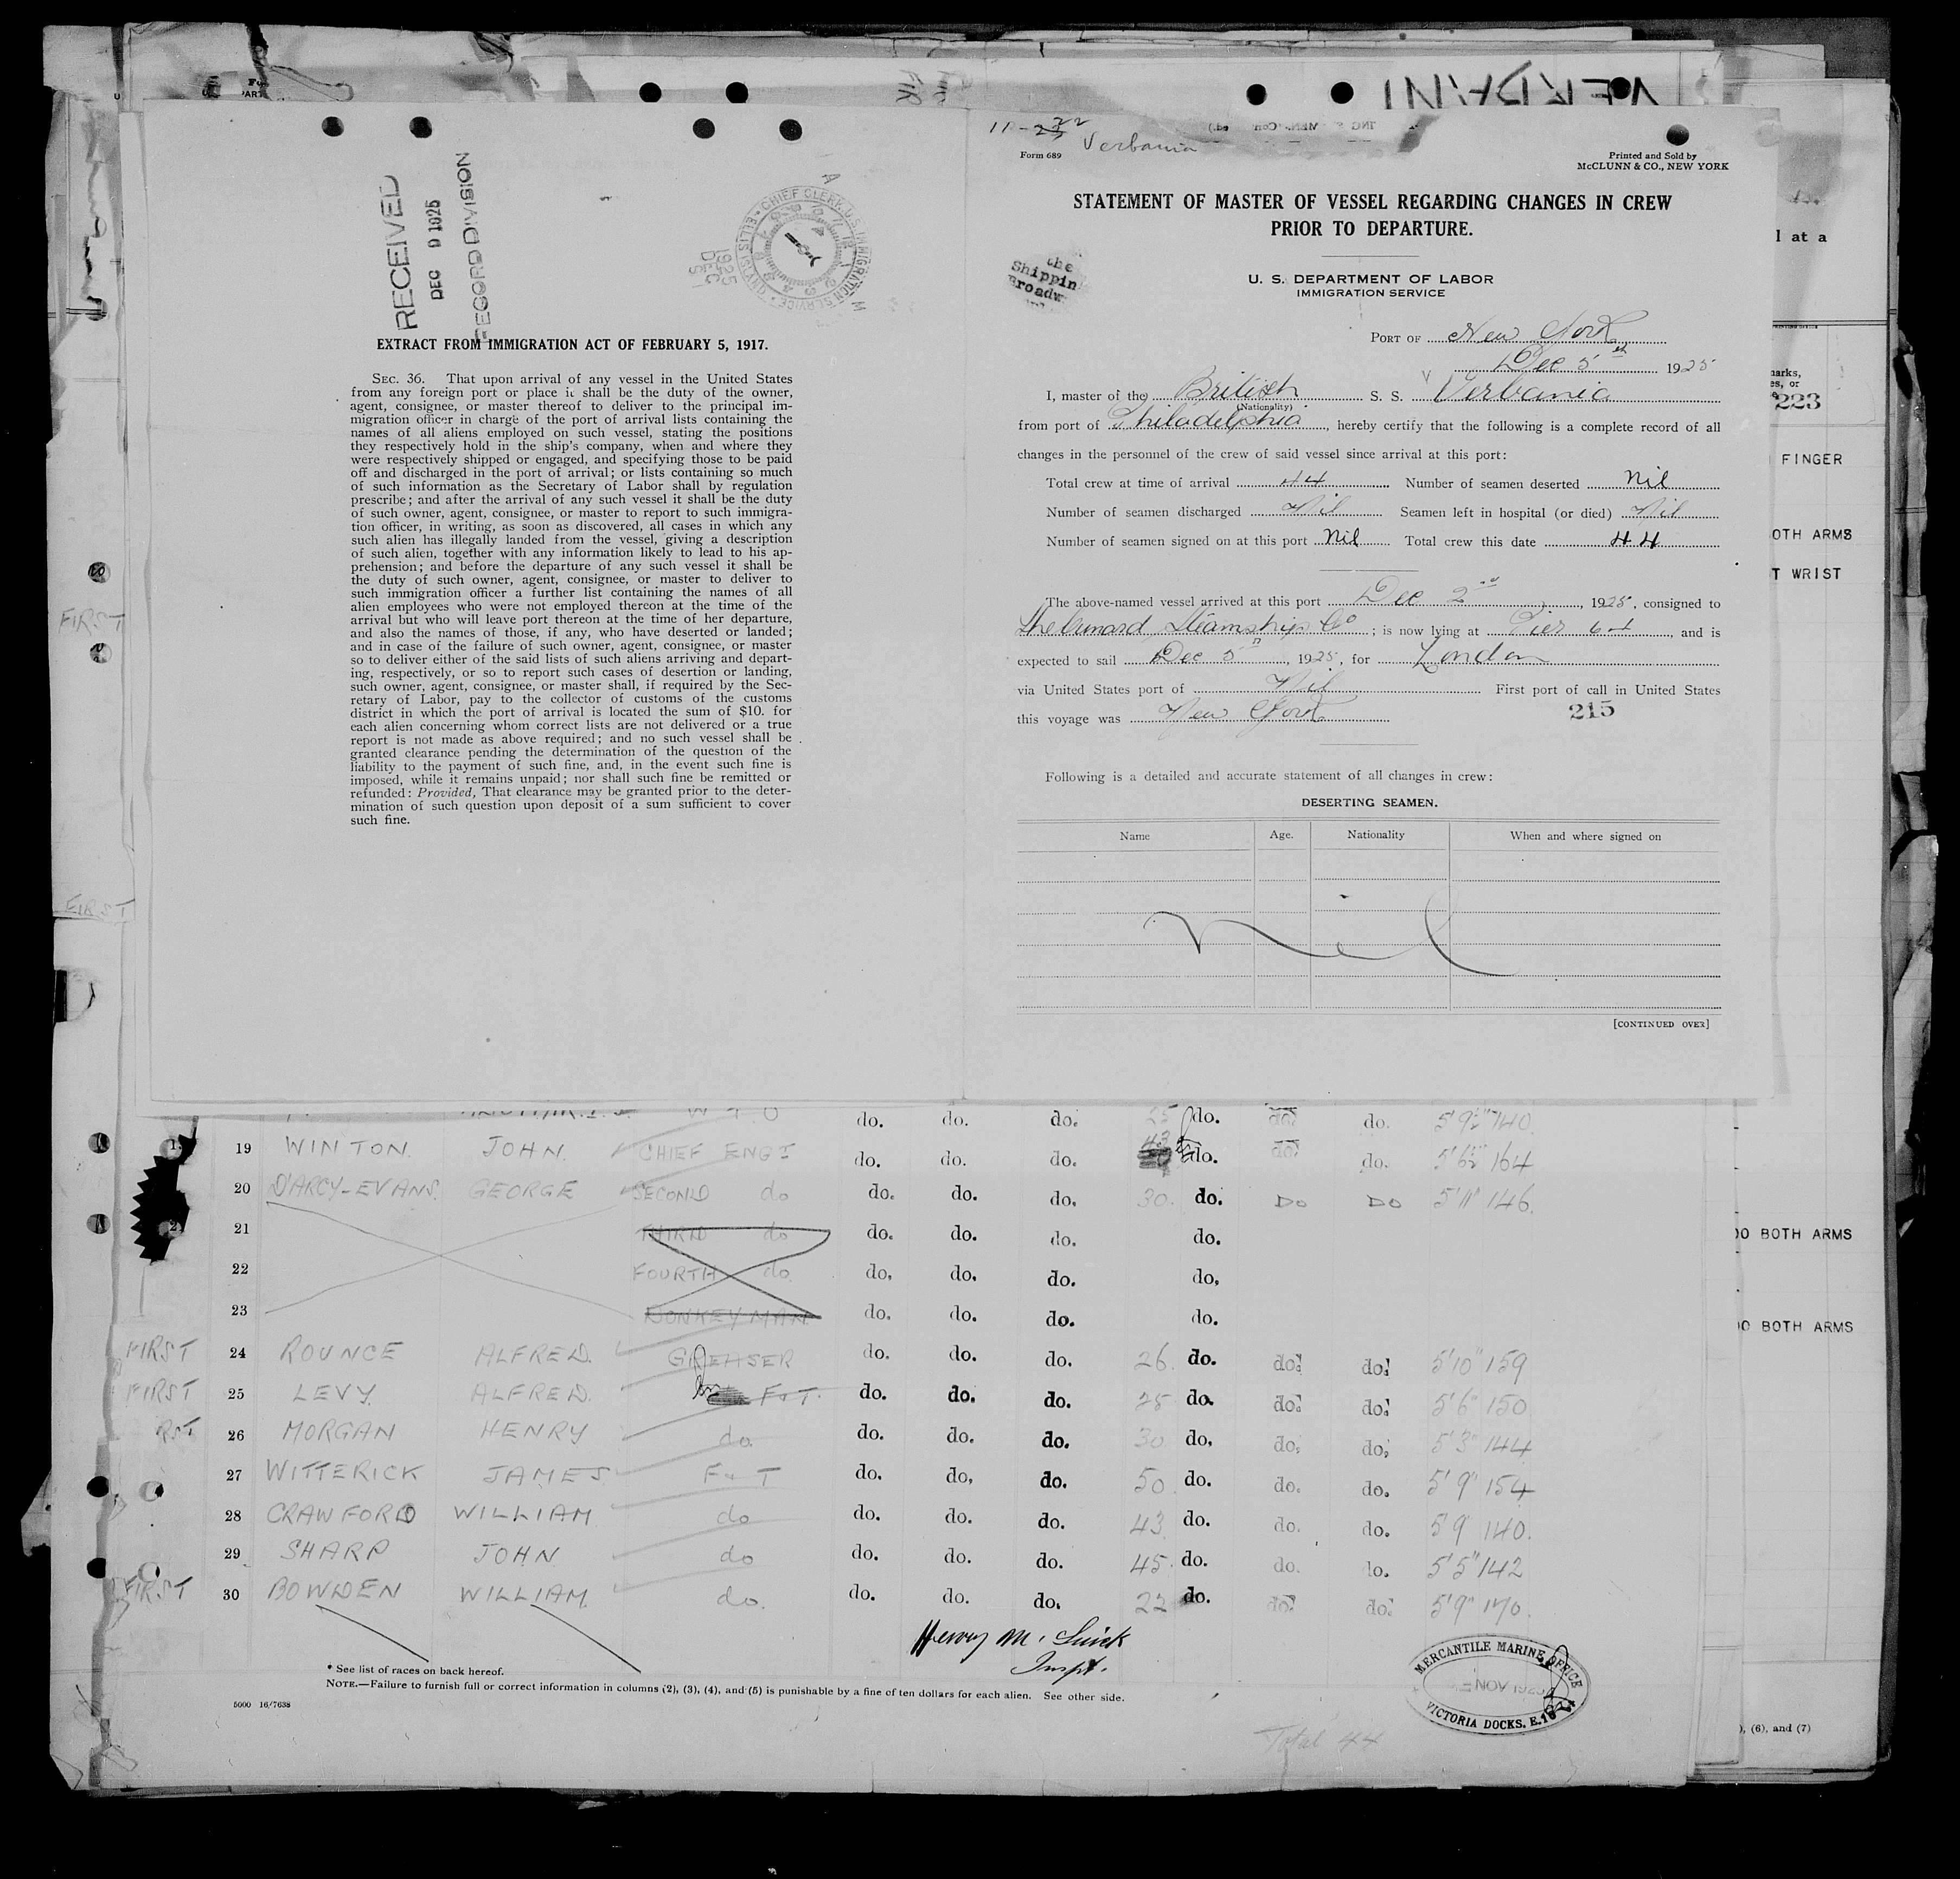 VERBANI
RECEIVED
DEC 9 1925
RECORD DIVISION
CHIEF CLERK, U.S. IMMIGRATION SERVICE
1925
DEC
5
EXTRACT FROM IMMIGRATION ACT OF FEBRUARY 5, 1917.
SEC. 36. That upon arrival of any vessel in the United States
from any foreign port or place it shall be the duty of the owner,
agent, consignee, or master thereof to deliver to the principal im-
migration officer in charge of the port of arrival lists containing the
names of all aliens employed on such vessel, stating the positions
they respectively hold in the ship's company, when and where they
were respectively shipped or engaged, and specifying those to be paid
off and discharged in the port of arrival; or lists containing so much
of such information as the Secretary of Labor shall by regulation
prescribe; and after the arrival of any such vessel it shall be the duty
of such owner, agent, consignee, or master to report to such immigra-
tion officer, in writing, as soon as discovered, all cases in which any
such alien has illegally landed from the vessel, giving a description
of such alien, together with any information likely to lead to his ap-
prehension; and before the departure of any such vessel it shall be
the duty of such owner, agent, consignee, or master to deliver to
such immigration officer a further list containing the names of all
alien employees who were not employed thereon at the time of the
arrival but who will leave port thereon at the time of her departure,
and also the names of those, if any, who have deserted or landed;
and in case of the failure of such owner, agent, consignee, or master
so to deliver either of the said lists of such aliens arriving and depart-
ing, respectively, or so to report such cases of desertion or landing,
such owner, agent, consignee, or master shall, if required by the Sec-
retary of Labor, pay to the collector of customs of the customs
district in which the port of arrival is located the sum of $10. for
each alien concerning whom correct lists are not delivered or a true
report is not made as above required; and no such vessel shall be
granted clearance pending the determination of the question of the
liability to the payment of such fine, and, in the event such fine is
imposed, while it remains unpaid; nor shall such fine be remitted or
refunded: Provided, That clearance may be granted prior to the deter-
mination of such question upon deposit of a sum sufficient to cover
such fine.
Verbania
Form 689
Printed and Sold by
McCLUNN & CO., NEW YORK
STATEMENT OF MASTER OF VESSEL REGARDING CHANGES IN CREW
PRIOR TO DEPARTURE.
the
Shippin
Broadw
U. S. DEPARTMENT OF LABOR
IMMIGRATION SERVICE
PORT OF New York
Dec 5th 1925
I, master of the British S. S. Verbania
(Nationality)
from port of Philadelphia, hereby certify that the following is a complete record of all
changes in the personnel of the crew of said vessel since arrival at this port:
Total crew at time of arrival 44 Number of seamen deserted Nil
Number of seamen discharged Nil Seamen left in hospital (or died) Nil
Number of seamen signed on at this port Nil Total crew this date 44
The above-named vessel arrived at this port Dec 2nd, 1925, consigned to
The Cunard Steamship Co; is now lying at Pier 64, and is
expected to sail Dec 5th, 1925, for London
via United States port of Nil First port of call in United States
this voyage was New York
215
Following is a detailed and accurate statement of all changes in crew:
DESERTING SEAMEN.
Name Age. Nationality When and where signed on
Nil
[CONTINUED OVER]
l at a
223
FINGER
OTH ARMS
T WRIST
OO BOTH ARMS
OO BOTH ARMS
), (6), and (7)
FIRST
FIRST
do. do. do. 25 do. do. do. 5'9½" 140
19 WINTON. JOHN. CHIEF ENGR do. do. do. 43 do. do. do. 5'6½" 164
20 D'ARCY-EVANS. GEORGE SECOND do do. do. do. 30. do. DO DO 5'11" 146
21 THIRD do do. do. do. do.
22 FOURTH do. do. do. do. do.
23 DONKEY MAN do. do. do. do.
FIRST 24 ROUNCE ALFRED. GREASER do. do. do. 26. do. do. do. 5'10" 159
FIRST 25 LEVY. ALFRED. F & T. do. do. do. 25 do. do. do. 5'6" 150
RST 26 MORGAN HENRY do. do. do. do. 30 do. do. do. 5'3" 144
27 WITTERICK JAMES. F & T do. do. do. 50. do. do. do. 5'9" 154
28 CRAWFORD WILLIAM do do. do. do. 43. do. do. do. 5'9" 140.
29 SHARP JOHN do do. do. do. 45. do. do. do. 5'5" 142
FIRST 30 BOWDEN WILLIAM. do. do. do. do. 22 do. do. do. 5'9" 170.
Henry M.
Inspt.
* See list of races on back hereof.
NOTE.—Failure to furnish full or correct information in columns (2), (3), (4), and (5) is punishable by a fine of ten dollars for each alien. See other side.
5000 16/7638
MERCANTILE MARINE OFFICE
NOV 1925
VICTORIA DOCKS. E.16
Total 44